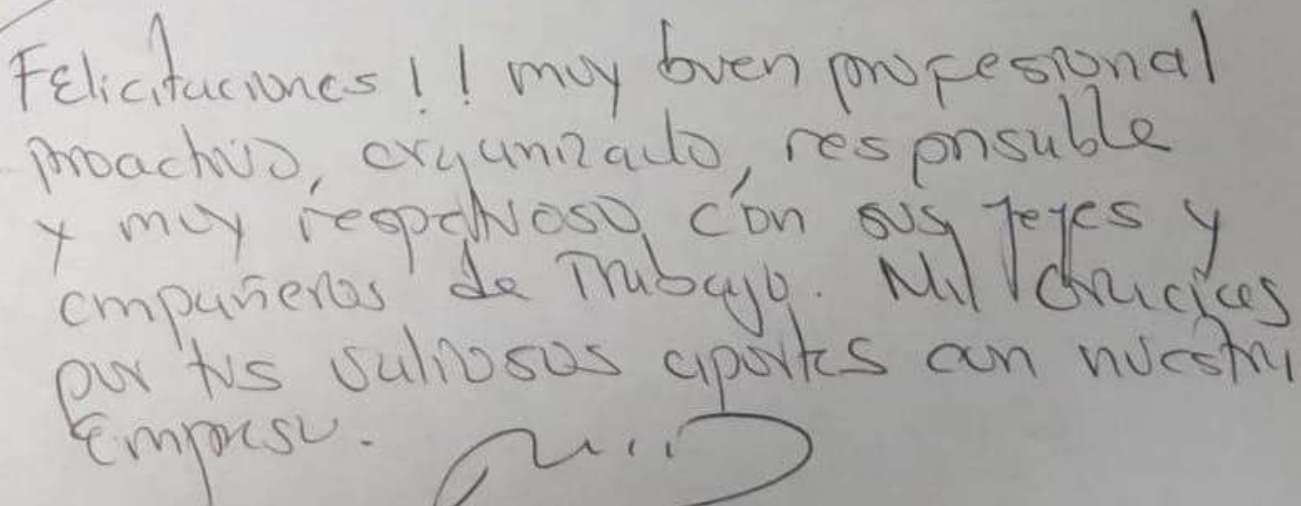 Felicitaciones!! muy buen profesional
proactivo, organizado, responsable
y muy respetuoso con sus jefes y
compañeros de Trabajo. Mil Gracias
por tus valiosos aportes con nuestra
Empresa.